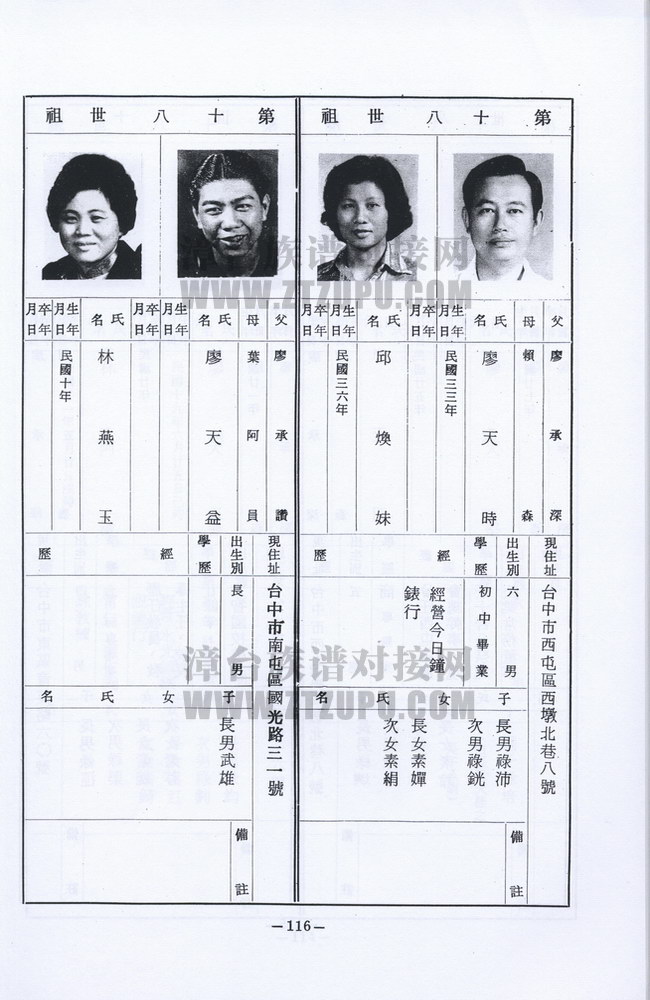 第十八世祖
父 廖承深
母 賴森
氏名 廖天時
生年月日 民國三三年
卒年月日
氏名 邱煥妹
生年月日 民國三六年
卒年月日
現住址 台中市西屯區西墩北巷八號
出生別 六男
學歷 初中畢業
經歷 經營今日鐘
錶行
子女氏名
長男祿沛
次男祿銧
長女素嬋
次女素絹
備註
第十八世祖
父 廖承讚
母 葉阿員
氏名 廖天益
生年月日
卒年月日
氏名 林燕玉
生年月日 民國十年
卒年月日
現住址 台中市南屯區國光路三一號
出生別 長男
學歷
經歷
子女氏名
長男武雄
備註
漳台族谱对接网
WWW.ZTZUPU.COM
漳台族谱对接网
WWW.ZTZUPU.COM
—116—